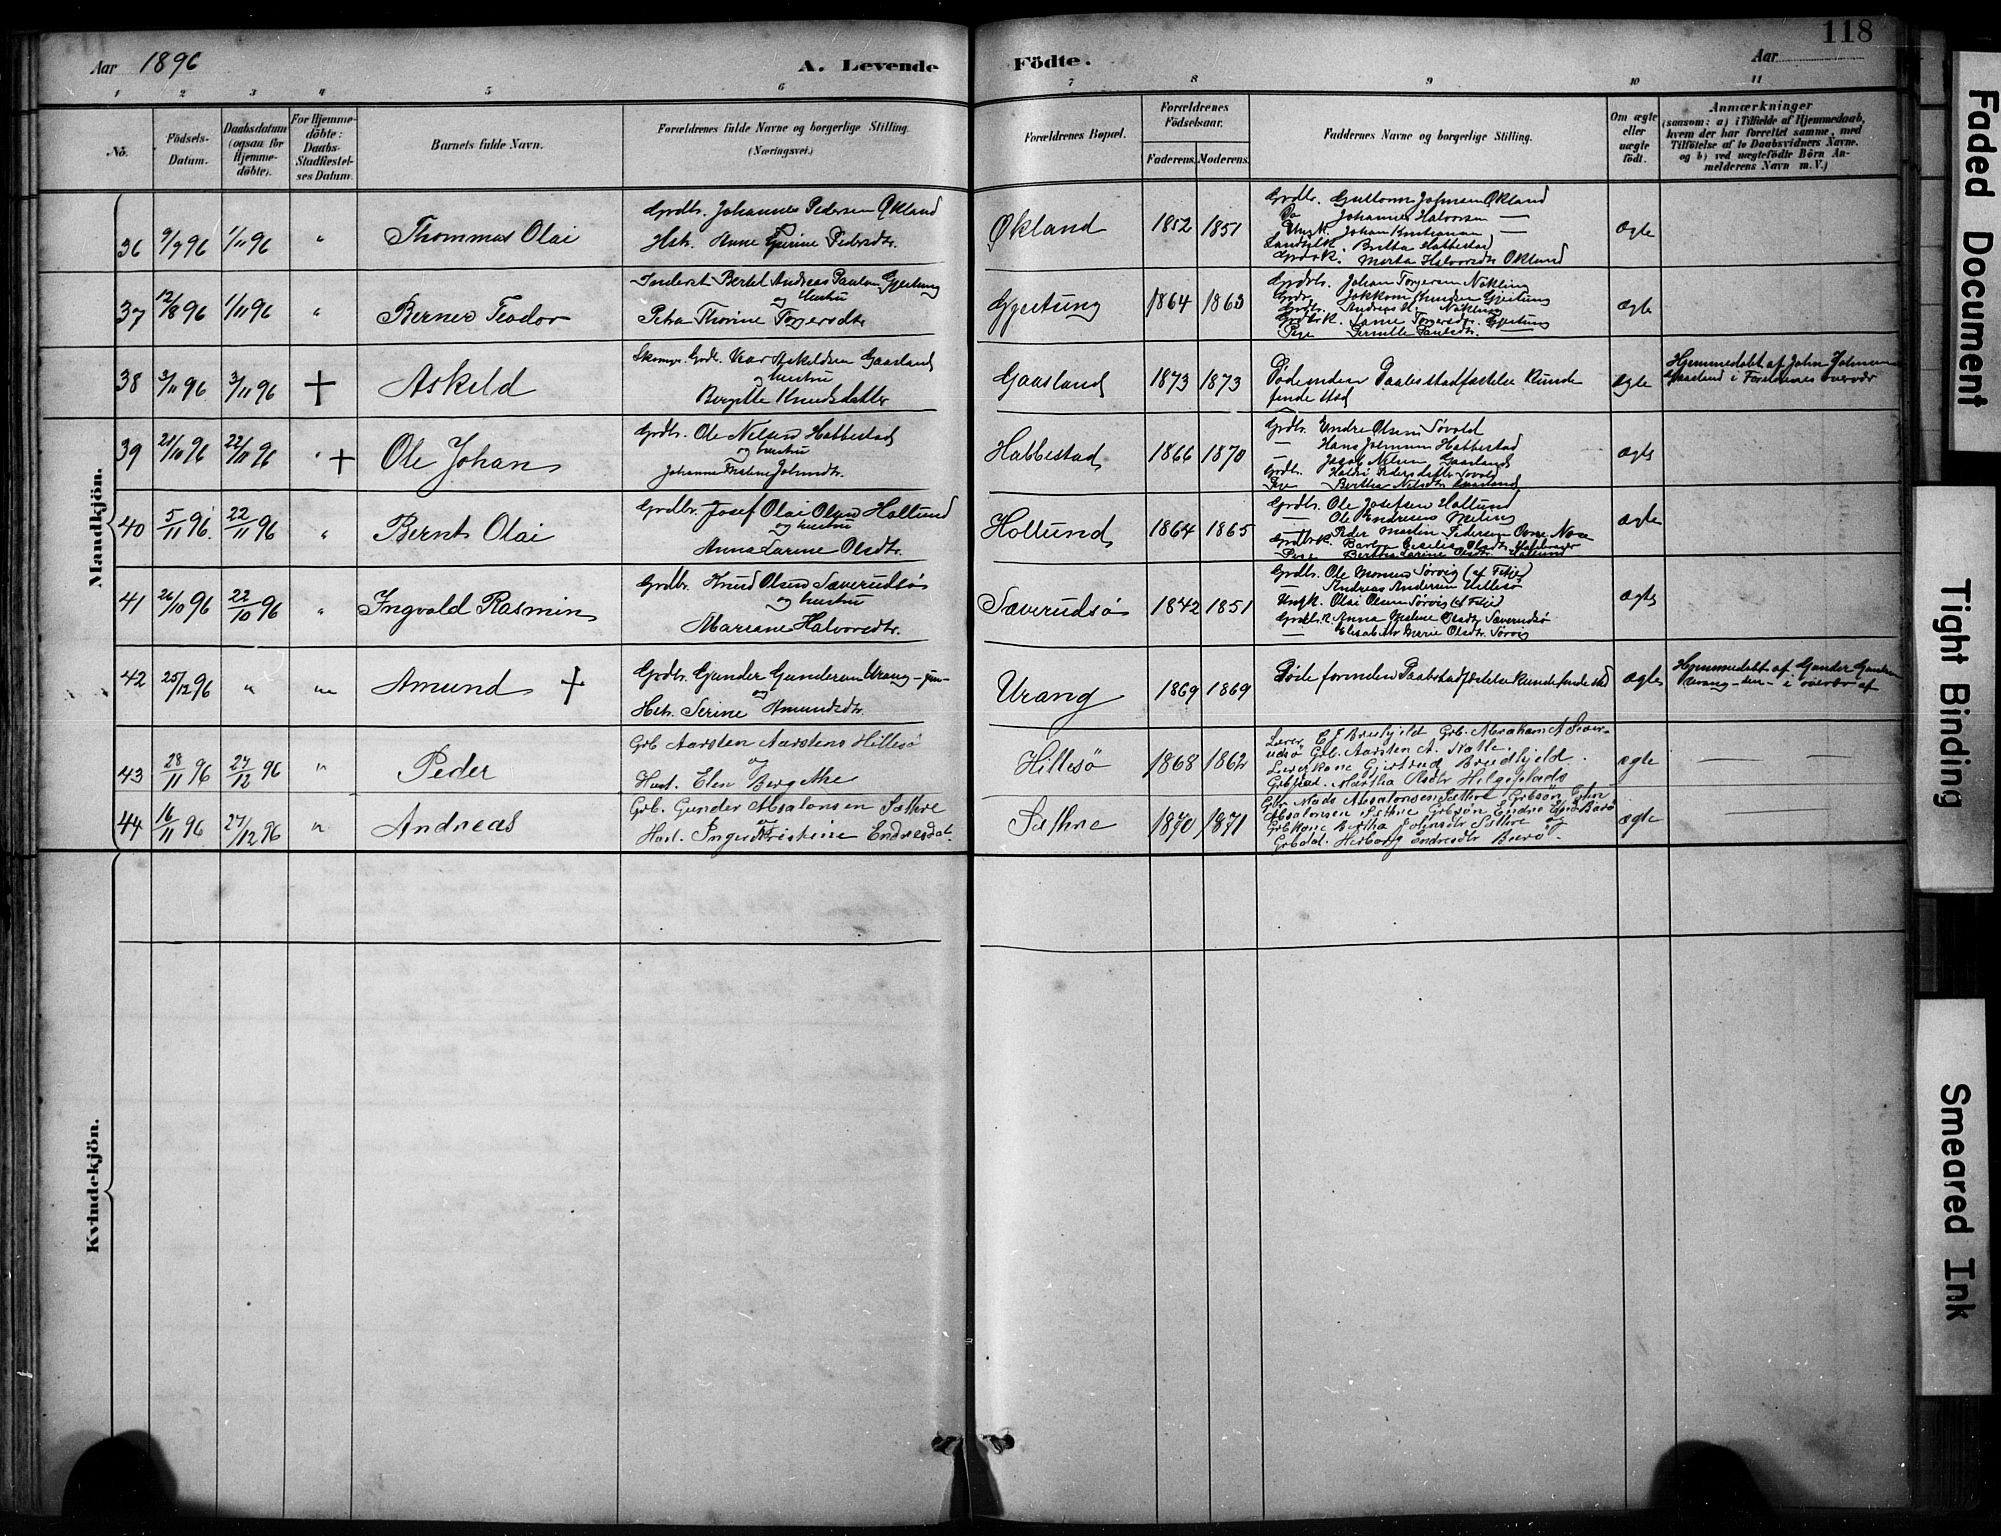 118
Aar 1896
A. Levende
Födte.
Aar
1 2 3 4 5 6 7 8 9 10 11
No.
Födsels-Datum.
Daabsdatum (ogsaa for Hjemme-döbte).
For Hjemme-döbte: Daabs-Stadfæstel-ses Datum.
Barnets fulde Navn.
Forældrenes fulde Navne og borgerlige Stilling.
(Næringsvei.)
Forældrenes Bopæl.
Forældrenes Födselsaar.
Faderens. Moderens.
Faddernes Navne og borgerlige Stilling.
Om ægte eller uægte födt.
Anmærkninger
(saasom: a) i Tilfælde af Hjemmedaab, hvem der har forrettet samme, med Tilföielse af to Daabsvidners Navne. og b) ved uægtefödte Börn An-melderens Navn m.V.)
Mandkjön.
36 9/9 96 1/11 96 " Thommas Olai
Grdbr. Johannes Pedersen Økland
Hstr. Anne Gurine Pedersdtr.
Økland 1852 1851
Johannes Halvorsen —
Johan Kristiansen —
Britta Habbestad
Marta Halvorsdtr Økland
ægte
37 12/8 96 1/11 96 " Bernes Teodor
Inderst Bertel Andreas Paulsen Gjeitung
og hustru
Petra Thorine Torgersdtr
Gjeitung 1864 1863
Grdbr. Johan Torgersen Nökling
Pernille Paulsdtr.
ægte
38 3/11 96 3/11 96 + Askeld
Askeldsen Gaasland
og hustru
Bergitte Knudsdatter
Gaasland 1873 1873
Döde inden Daabsstadfæstelse kunde
finde sted
ægte
Hjemmedøbt af John Johnsen
Gaasland i Forældrenes overvær
39 21/10 96 22/11 96 " + Ole Johan
Grdbr. Ole Nelsen Habbestad
og hustru
Johanne Johnsdtr.
Habbestad 1866 1870
Grdbr. Endre Olsen
— Hans Johnsen Habbestad
— Jacob Nelsen Gaasland
Pige Bertha Nelsdtr. Gaasland
ægte
40 5/11 96. 22/11 96 " Bernt Olai
Grdbr. Josef Olai Olsen Hollund
og hustru
Anna Larine Olsdtr.
Hollund 1864 1865
Grdbr. Ole Josefsen Hollund
— Ole Endresen Meling
— Peder Martin Pedersen
Pige Berthe Larine Olsdtr. Hollund
ægte
41 26/10 96 22/10 96 " Ingvald Rasmin
Grdbr. Knud Olsen Sæverudsö
og hustru
Mariane Halvorsdtr.
Sæverudsö 1842 1851
Grdbr. Ole Sørvig (af Fitje)
— Andreas Andersen Hillesø
Ungk. Olai Olsen Sørvig (af Fitje)
Anna Olsdtr Sæverudsö
— Elisabeth Marie Olsdtr. Sørvig
ægte
42 25/12 96 " " Amund +
Grdbr. Gunder Gundersen Urang — jun —
og
Hstr. Serine Amundsdtr.
Urang 1869 1869
Döde forinden Daabsstadfæstelse kunde finde sted
ægte
Hjemmedøbt af Gunder
Urang — sen — i overvær af
43 28/11 96 27/12 96 " Peder
Grb Aarsten Aarstens Hillesö
og
Hust. Elen Berg
Hillesö 1868 1862
Lærer Grb. Abraham A Sæver-
udsö Grb. Aarsten A.
Lærerkone Gjertrud
Martha Olsdtr Helgeplads
ægte — —
44 16/11 96 27/12 96 " Andreas
Grb. Gunder Absalonsen Sæthre
og
Hust. Inger Kristine Endresdat.
Sæthre 1870 1871
Gbr. Mads Absalonsen Sæthre Grbsön
Absalonsen Sæthre Grbsön Endre
Grbkone Bertha Johnsdtr Sæthre og
Grbdat. Herborg Endresdtr
ægte —
Kvindekjön.
Faded Document
Tight Binding
Smeared Ink